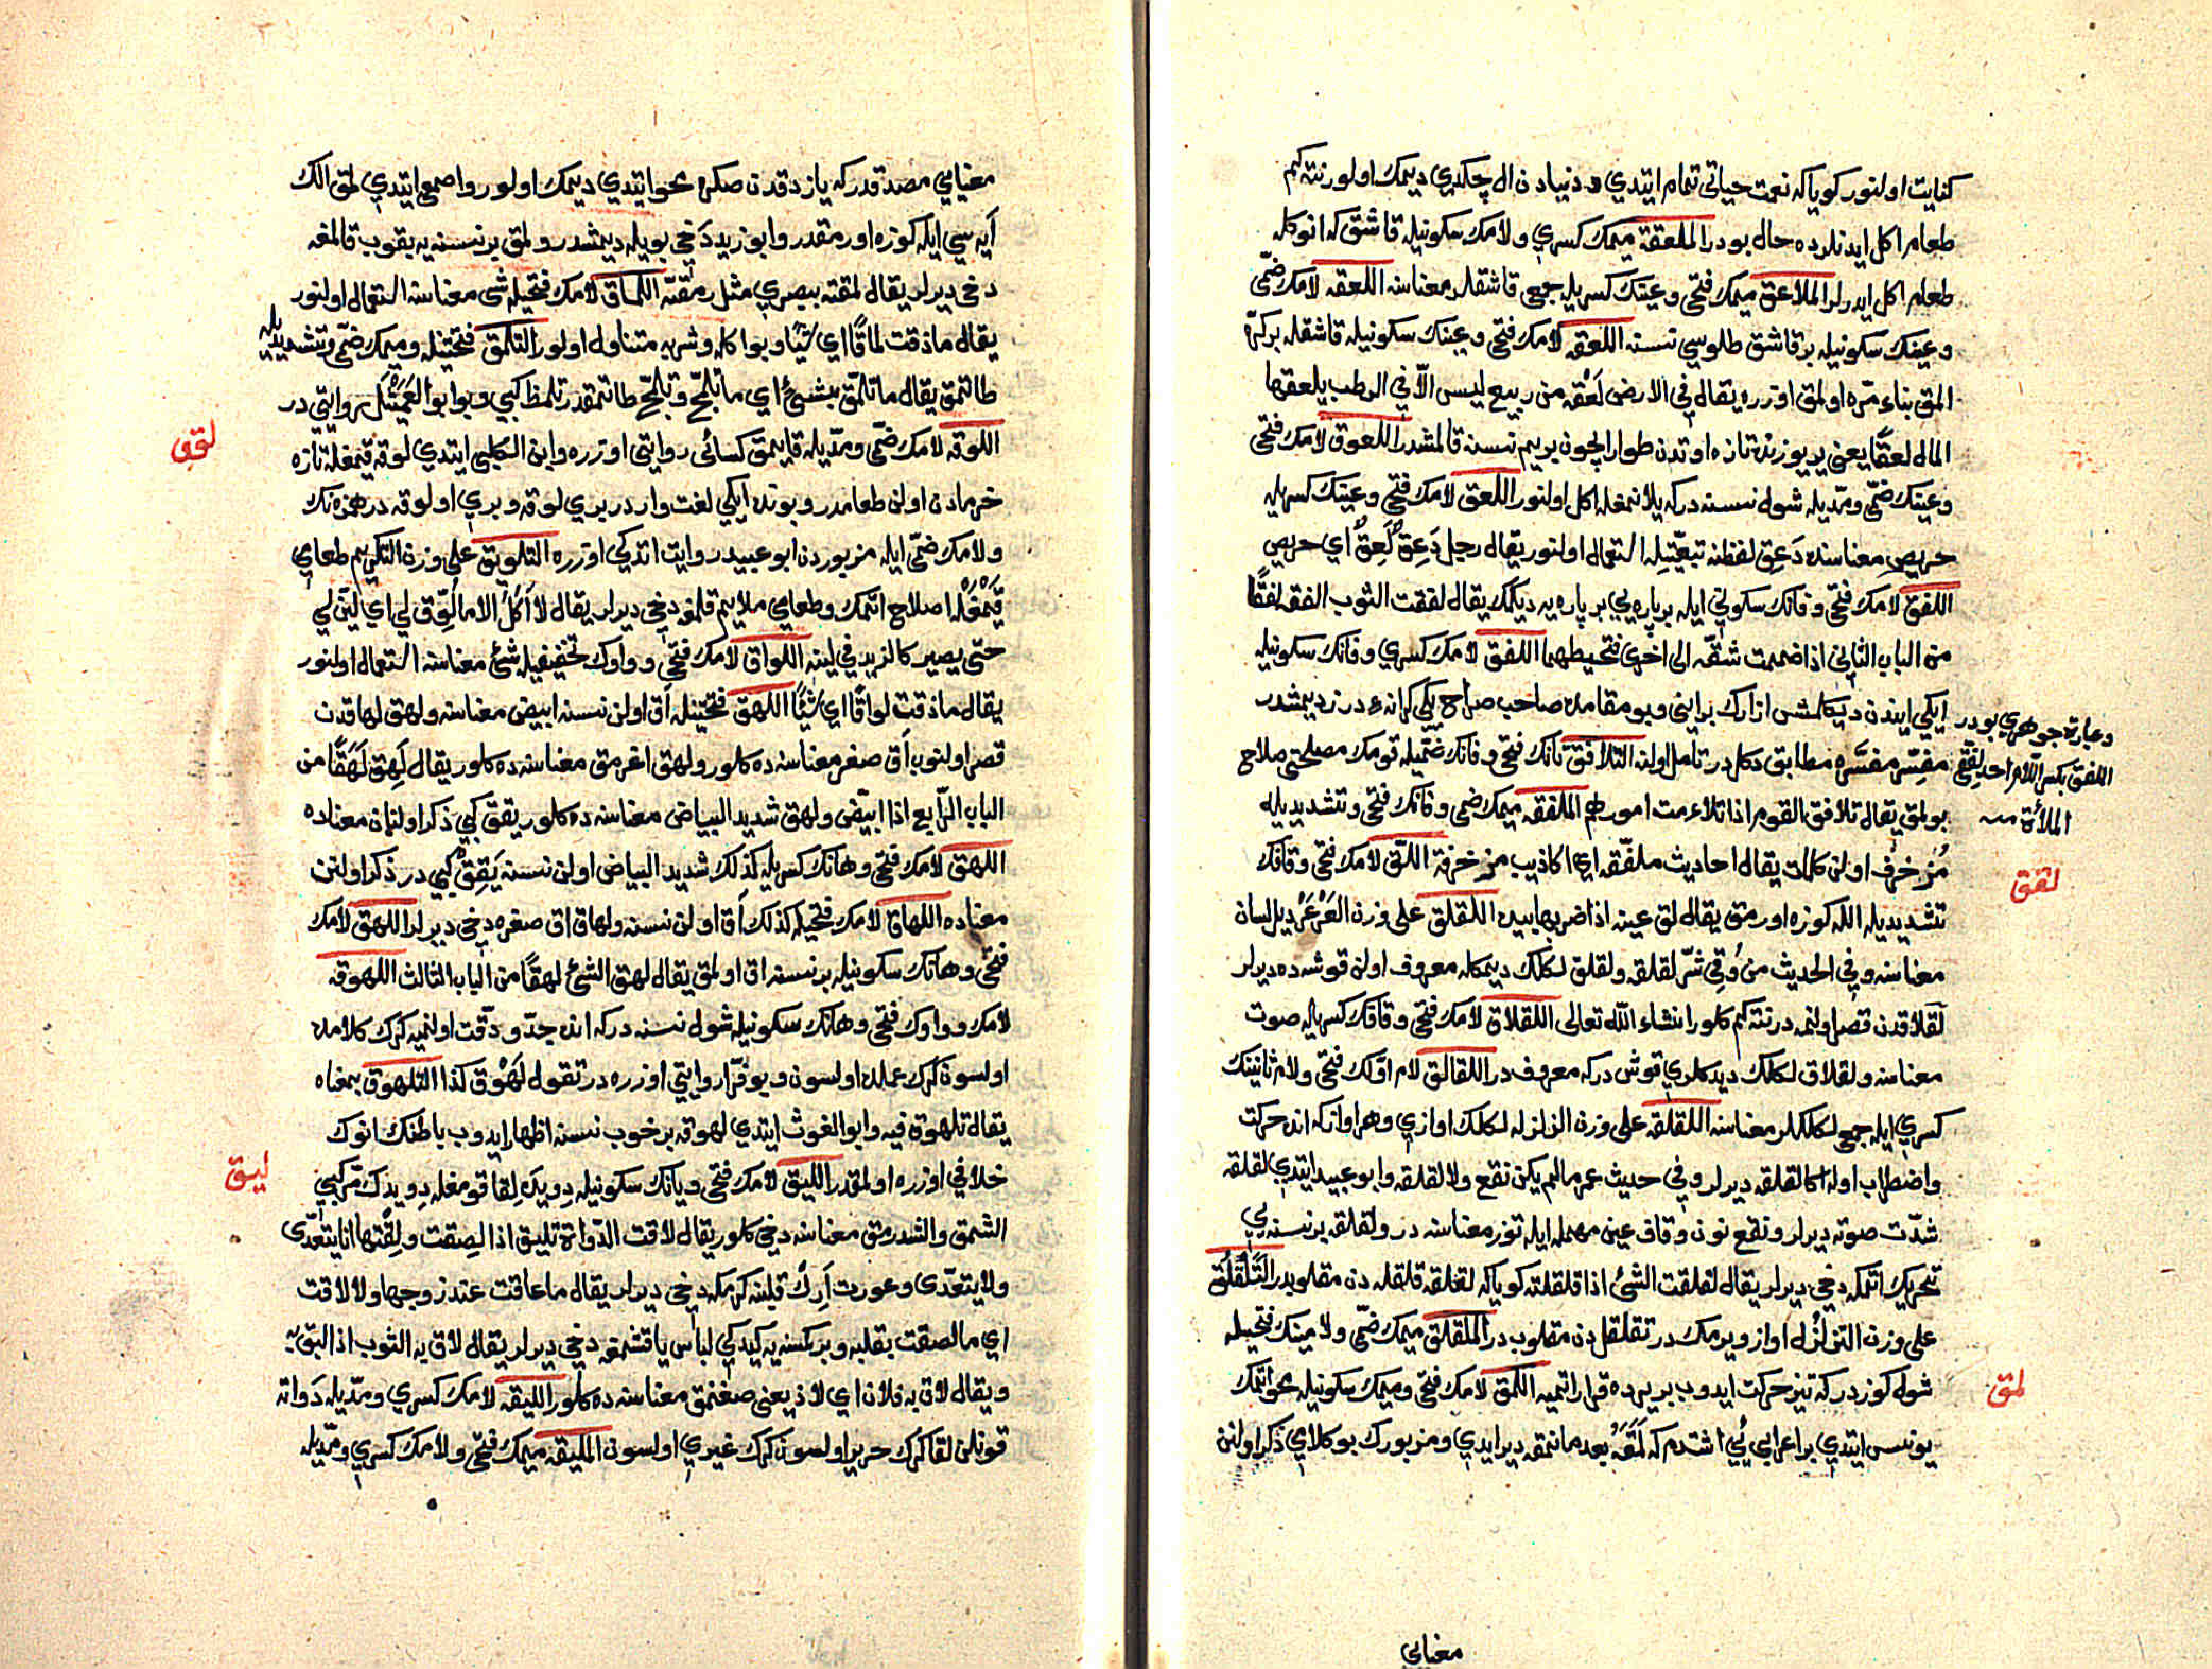 كنايت اولنور كويا كه نعمت حياتى تمام ايتدي و دنيادن ال چكدي ديمك اولور نته كم
طعام اكل ايدنلرده حال بودر الملعقة ميمك كسري ولامك سكونيله قاشق كه انوكله
طعام اكل ايدرلر الملاعق ميمك فتحى وعينك كسريله جمعى قاشقلر معناسنه اللعقه لامك ضمّى
وعينك سكونيله بر قاشق طلوسي نسنه اللعقه لامك فتحى وعينك سكونيله قاشقله بر كرّه
المق بناء مرّه اولمق اوزره يقال في الارض لَعْقه من ربيع ليس الّا في الرطب يلعقها
المال لعقًا يعنى ير يوزنده تازه اوتدن طوار ايچون بر يم نسنه قالمشدر اللعوق لامك فتحى
وعينك ضمّى ومدّيله شول نسنه دركه يلانمغله اكل اولنور اللعق لامك فتحى وعينك كسريله
حريص معناسنه دَعِق لفظنه تبعيّتله استعمال اولنور يقال رجل دَعِقٌ لَعِقٌ اي حريص
اللفق لامك فتحى وفانك سكوني ايله بر پاره يي بر پاره يه ديكمك يقال لفقت الثوب الفقه لفقًا
من الباب الثاني اذا ضممت شقّه الى اخرى فتخيطهما اللفق لامك كسري وفانك سكونيله
ايكي ايندن ديكلمش ازارك براينى وبو مقامده صاحب صراح يكي كرانهء درز ديمشدر
وعبارة جوهري بودر
اللفق بكسر اللام احد لفقي
الملاءة منه
مفسِّر مفسَّره مطابق دكلدر تامل اولنه التلافق تانك فتحى وفانك ضمّيله قومك مصلحتى صلاح
بولمق يقال تلافق القوم اذا تلاءمت امورهم الملفقه ميمك ضمى وفانك فتحى وتشديديله
مُزخرف اولن كلمات يقال احاديث ملفّقه اي اكاذيب مزخرفة اللّق لامك فتحى وقافك
لقق
تشديديله الله كوزه اورمق يقال لق عينه اذا ضربها بيده اللقلق على وزن العَرْعَرْ ديل لسان
معناسنه وفي الحديث من وُقي شرّ لقلقه ولقلق لكلك ديمكله معروف اولن قوشه ده ديرلر
لقلاقدن قصر اولنمه در نته كم كلور انشاء الله تعالى اللقلاق لامك فتحى وقافك كسريله صوت
معناسنه ولقلاق لكلك ديدكلري قوش دركه معروف در اللقالق لام اوّلك فتحى ولام ثانينك
كسري ايله جمعى لكلكلر معناسنه اللقلقه على وزن الزلزله لكلك اوازي وهر اوازكه انده حركت
واضطراب اوله اكا لقلقه ديرلر وفي حديث عمر مالم يكن نقع ولا لقلقه وابو عبيد ايتدي لقلقه
شدّت صوته ديرلر ونقع نون وقاف عين مهمله ايله توز معناسنه در ولقلقه بر نسنه يي
تحريك اتمكه دخي ديرلر يقال لقلقت الشئ اذا قلقلته كويا كه لقلقه قلقله دن مقلوبدر التَّلَقْلُق
على وزن التزلزل اواز ويرمك در تقلقل دن مقلوب در الملقلق ميمك ضمّى ولامينك فتحيله
شول كوزدركه تيز حركت ايدوب بر يرده قرار اتميه اللمق لامك فتحى وميمك سكونيله محو اتمك
لمق
يونس ايتدي بر اعرابي يي اشتدم كه لَمَقَهُ بعد ما نمقه دير ايدي ومزبورك بو كلامي ذكر اولنن
معنايي
معنايي مصدقدركه يازدقدن صكره محو ايتدي ديمك اولور واصمعى ايتدي لمق الك
اَيه سي ايله كوزه اورمقدر وابو زيد دَخي بويله ديمشدر ولمق بر نسنه يه بقوب قالمغه
دخى ديرلر يقال لمقته ببصري مثل رمقته اللماق لامك فتحيله شئ معناسنه استعمال اولنور
يقال ماذقت لماقًا اي شيئًا وبو اكله وشربه متناول اولور التلمق فتحتينله وميمك ضمّى وتشديديله
طاتمق يقال ماتلمّق بشئ اي ماتلمّج وتلمّج طاتمقدر تلمظ كبي وبو ابو العَمَيْثَل روايتى در
اللوقه لامك ضمّى ومدّيله قايمق كسائى روايتى اوزره وابن الكلبي ايتدي لوقه قيمغله تازه
لوق
خرمادن اولن طعامدر وبونده ايكي لغت واردر بري لوقه وبري اولوقه در همزه نك
ولامك ضمّى ايله مزبوردن ابو عبيد روايت اتدكى اوزره التلويق على وزن التكريم طعامي
قَيْمَغْله اصلاح اتمك وطعامي ملايم قلمغه دخي ديرلر يقال لا اٰكُلُ الا ما لُوِّق لي اي لُيّن لي
حتى يصير كالزبد في لينه اللواق لامك فتحى وواوك تخفيفيله شئ معناسنه استعمال اولنور
يقال ماذقت لواقًا اي شيئًا اللهق فتحتينله اَق اولن نسنه ابيض معناسنه ولهق لهاقدن
قصر اولنوب اَق صغر معناسنه ده كلور ولهق اغرمق معناسنه ده كلور يقال لَهِق لَهَقًا من
الباب الرّابع اذا ابيضّ ولهق شديد البياض معناسنه ده كلور يقق كبي ذكر اولنان معناده
اللهق لامك فتحى وهانك كسريله كذلك شديد البياض اولن نسنه يَقِقْ كبي در ذكر اولنن
معناده اللهاق لامك فتحيله كذلك اَق اولن نسنه ولهاق اق صغره دخي ديرلر اللهق لامك
فتحى وهانك سكونيله بر نسنه اق اولمق يقال لهق الشئ لهقًا من الباب الثالث اللهوقه
لامك وواوك فتحى وهانك سكونيله شول نسنه دركه انده جدّ و دقّت اولنميه كرك كلامده
اولسون كرك عملده اولسون وبو فرّا روايتى اوزره در تقول لَهْوَق كذا التلهوق بمعناه
يقال تلهوق فيه وابو الغوث ايتدي لهوقه بر خوب نسنه اظهار ايدوب باطنك انوك
خلافي اوزره اولمقدر الليق لامك فتحى ويانك سكونيله دويته لقا قومغله دويدك مركبى
ليق
الشمق والشدرمق معناسنه دخي كلور يقال لاقت الدّواة تليق اذا لصقت ولقتها انا يتعدّى
ولا يتعدّى وعورت اَرِك قلبنه كرمكه دخي ديرلر يقال ماعاقت عند زوجها ولا لاقت
اي مالصقت بقلبه وبر كمسنه يه كيدكي لباس ياقشمغه دخي ديرلر يقال لاق به الثوب اذا لبق به
ويقال لاق به فلان اي لاذ يعنى صغنمق معناسنه ده كلور الليقه لامك كسري ومدّيله دَواته
قونلن لقا كرك حرير اولسون كرك غيري اولسون المليقه ميمك فتحى ولامك كسري ومدّيله